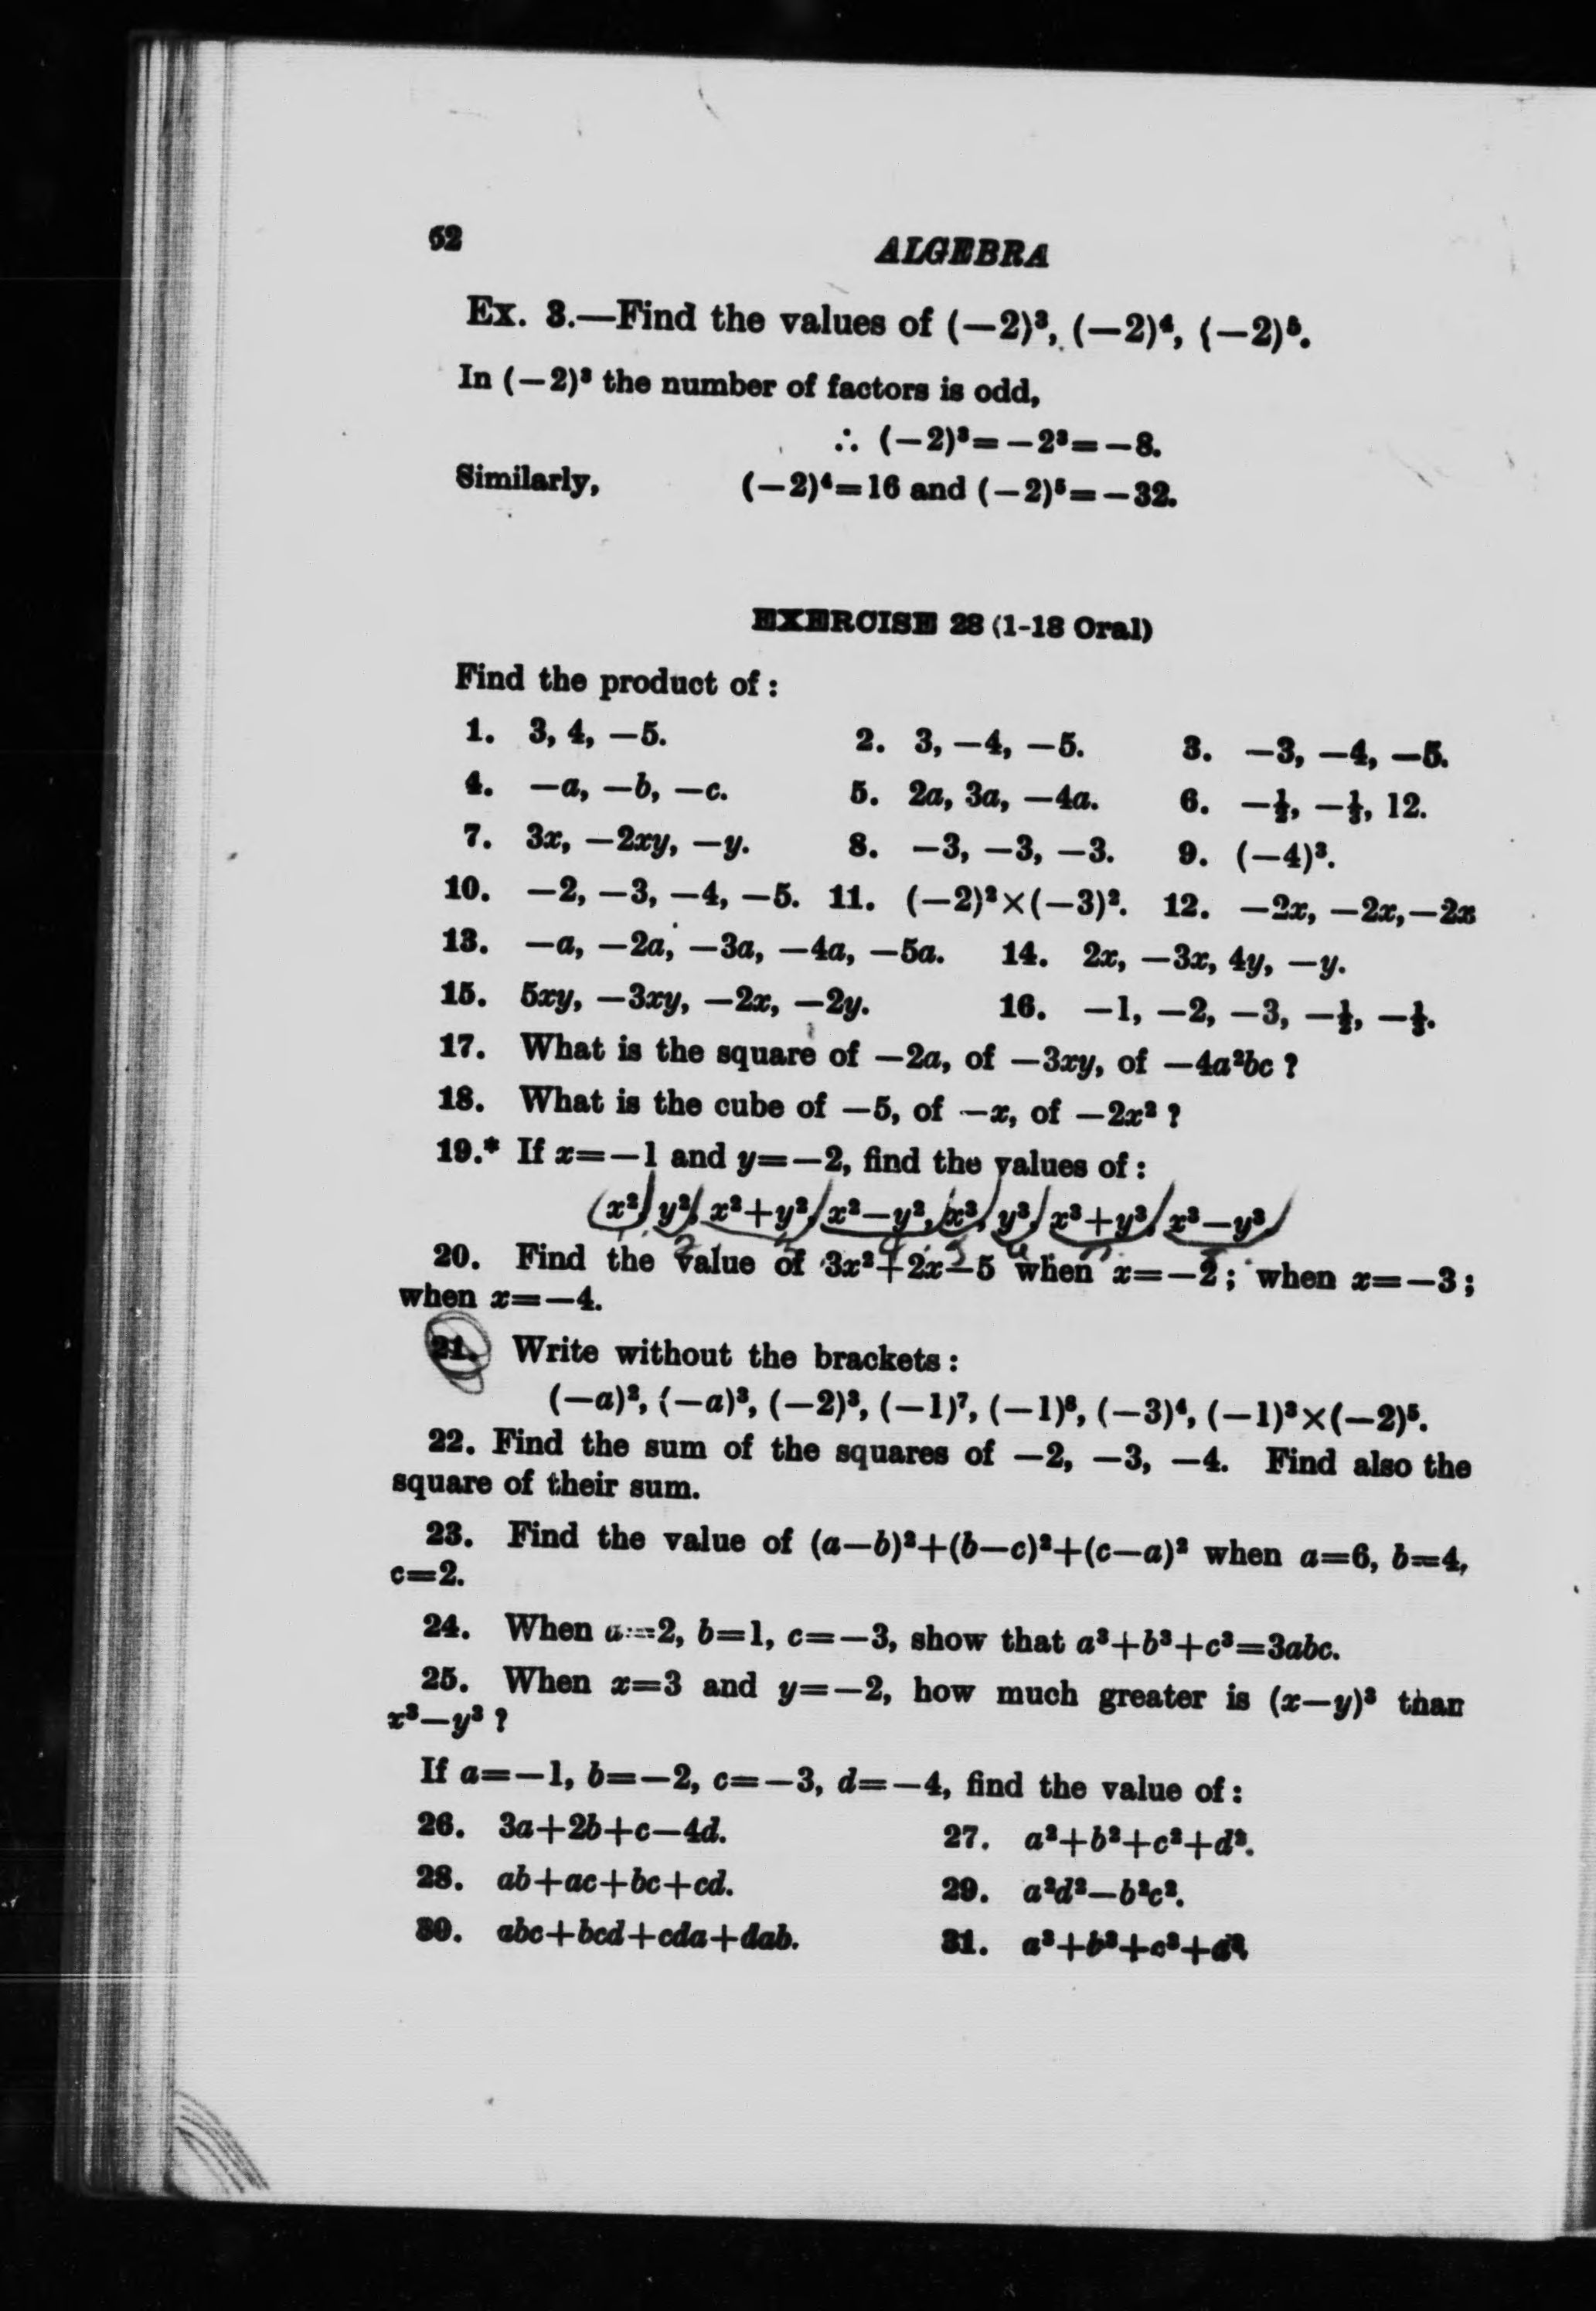 52
ALGEBRA
Ex. 3.—Find the values of (−2)³, (−2)⁴, (−2)⁵.
In (−2)³ the number of factors is odd,
∴ (−2)³=−2³=−8.
Similarly, (−2)⁴=16 and (−2)⁵=−32.
EXERCISE 28 (1-18 Oral)
Find the product of:
1. 3, 4, −5. 2. 3, −4, −5. 3. −3, −4, −5.
4. −a, −b, −c. 5. 2a, 3a, −4a. 6. −½, −⅓, 12.
7. 3x, −2xy, −y. 8. −3, −3, −3. 9. (−4)³.
10. −2, −3, −4, −5. 11. (−2)²×(−3)². 12. −2x, −2x, −2x
13. −a, −2a, −3a, −4a, −5a. 14. 2x, −3x, 4y, −y.
15. 5xy, −3xy, −2x, −2y. 16. −1, −2, −3, −½, −⅓.
17. What is the square of −2a, of −3xy, of −4a²bc ?
18. What is the cube of −5, of −x, of −2x² ?
19.* If x=−1 and y=−2, find the values of:
x², y², x²+y², x²−y², x³, y³, x³+y³, x³−y³.
20. Find the value of 3x²+2x−5 when x=−2; when x=−3;
when x=−4.
21. Write without the brackets:
(−a)², (−a)³, (−2)³, (−1)⁷, (−1)⁸, (−3)⁴, (−1)³×(−2)⁵.
22. Find the sum of the squares of −2, −3, −4. Find also the
square of their sum.
23. Find the value of (a−b)²+(b−c)²+(c−a)² when a=6, b=4,
c=2.
24. When a=2, b=1, c=−3, show that a³+b³+c³=3abc.
25. When x=3 and y=−2, how much greater is (x−y)³ than
x³−y³ ?
If a=−1, b=−2, c=−3, d=−4, find the value of:
26. 3a+2b+c−4d. 27. a²+b²+c²+d².
28. ab+ac+bc+cd. 29. a²d²−b²c².
30. abc+bcd+cda+dab. 31. a³+b³+c³+d³.